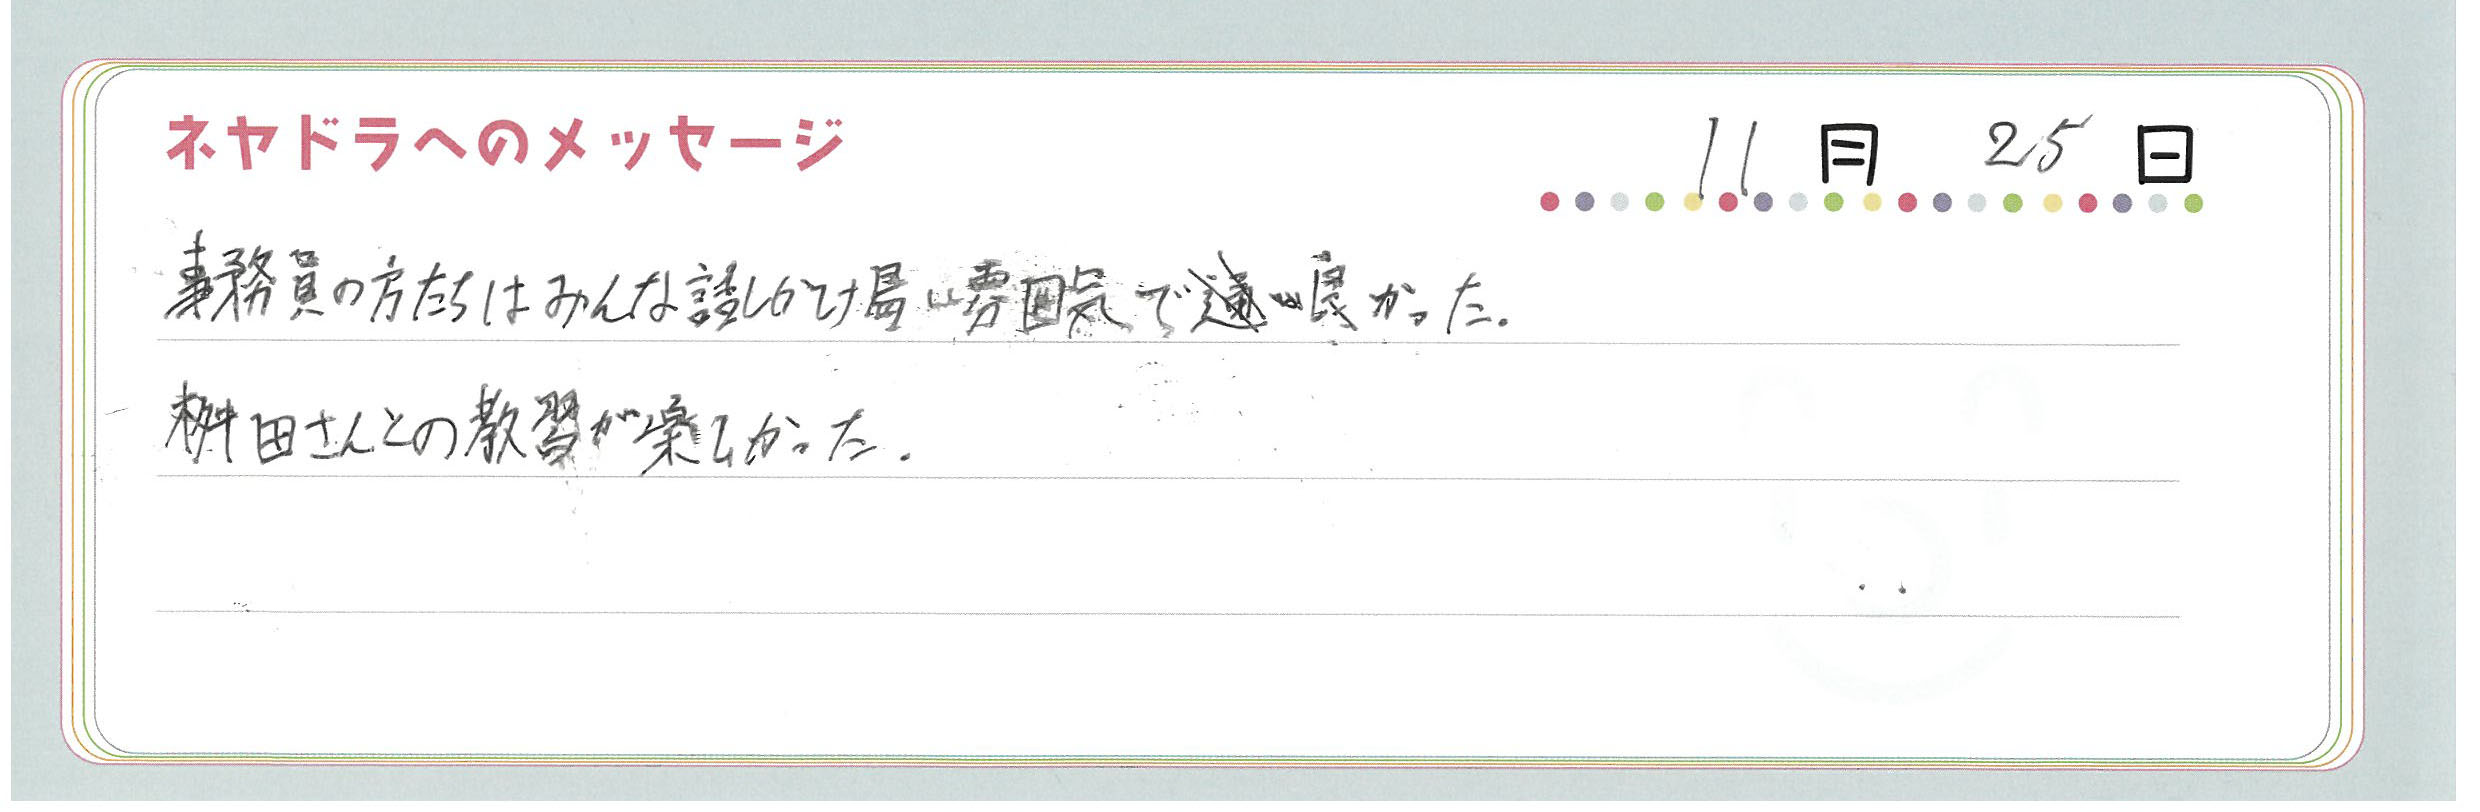 ネヤドラへのメッセージ
11月 25日
事務員の方たちはみんな話しかけ易い雰囲気で良かった.
桝田さんとの教習が楽しかった.